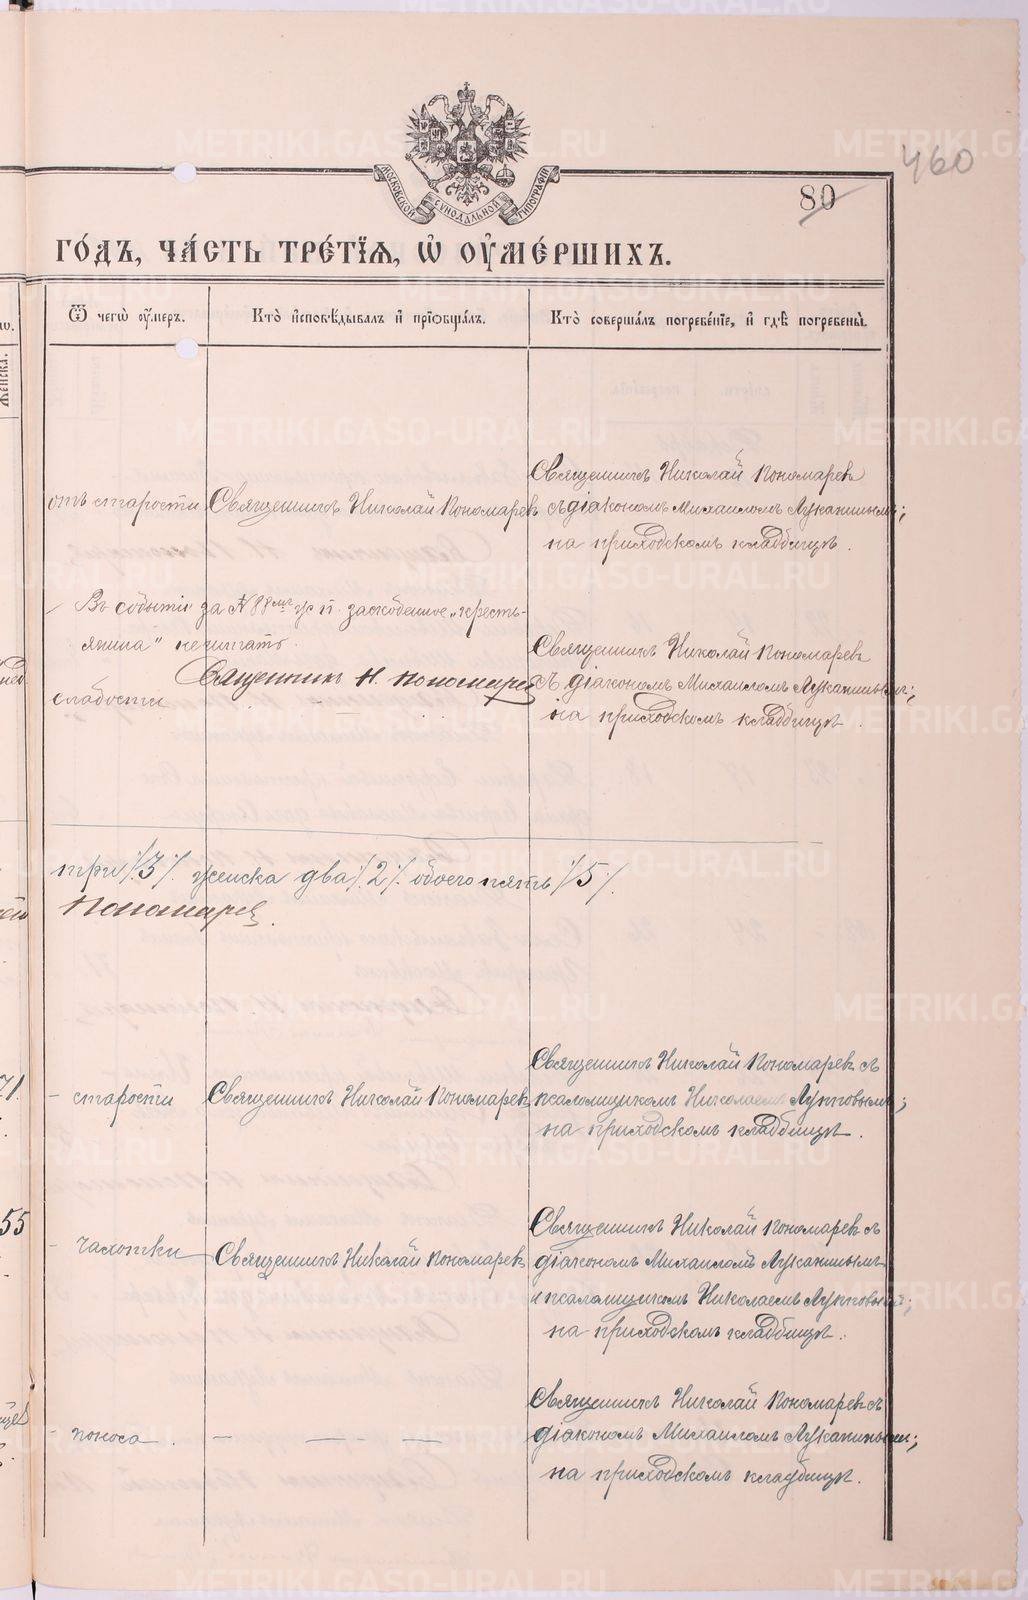 460
80
МОСКОВСКОЙ СѴНОДАЛЬНОЙ ТИПОГРАФІИ
ГО́ДЪ, ЧА́СТЬ ТРЕ́ТІѦ, Ѡ ОУ҆МЕ́РШИХЪ.
Ѿ чегѡ̀ оу҆́меръ.
Кто̀ и҆сповѣ́дывалъ и҆ прїѻбща́лъ.
Кто̀ соверша́лъ погребе́нїе, и҆ гдѣ̀ погребены̀.
Женска.
отъ старости
Священникъ Николай Пономаревъ
Священникъ Николай Пономаревъ
съ діакономъ Михаиломъ Луканинымъ;
на приходскомъ кладбищѣ.
Въ событіи за № 88мъ м. п. зачеркнутое „кресть-
янина" не читать.
Священникъ Н. Пономарев
слабости
Священникъ Николай Пономаревъ
съ діакономъ Михаиломъ Луканинымъ;
на приходскомъ кладбищѣ.
три /3/. женска два /2/. обоего пять /5/.
Пономарев.
71.
старости
Священникъ Николай Пономаревъ
Священникъ Николай Пономаревъ съ
псаломщикомъ Николаемъ Лупповымъ;
на приходскомъ кладбищѣ.
55
чахотки
Священникъ Николай Пономаревъ
Священникъ Николай Пономаревъ съ
діакономъ Михаиломъ Луканинымъ
и псаломщикомъ Николаемъ Лупповымъ;
на приходскомъ кладбищѣ.
поноса.
Священникъ Николай Пономаревъ съ
діакономъ Михаиломъ Луканинымъ;
на приходскомъ кладбищѣ.
METRIKI.GASO-URAL.RU